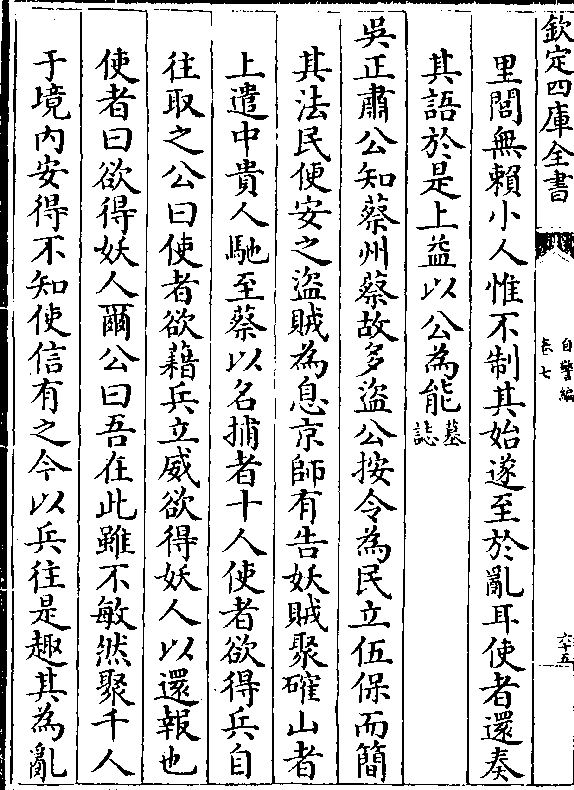 欽定四庫全書
自警編
卷七
六十五
里閭無賴小人惟不制其始遂至於亂耳使者還奏
其語於是上益以公為能墓誌
吳正肅公知蔡州蔡故多盜公按令為民立伍保而簡
其法民便安之盜賊為息京師有告妖賊聚確山者
上遣中貴人馳至蔡以名捕者十人使者欲得兵自
往取之公曰使者欲藉兵立威欲得妖人以還報也
使者曰欲得妖人爾公曰吾在此雖不敏然聚千人
于境內安得不知使信有之今以兵往是趣其為亂